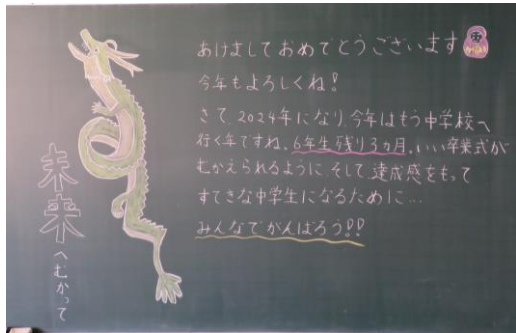 あけましておめでとうございます
今年もよろしくね！
さて、2024年になり、今年はもう中学校へ
行く年ですね。6年生残り3ヵ月。いい卒業式が
むかえられるように、そして、達成感をもって
すてきな中学生になるために…
みんなでがんばろう!!
未来へむかって